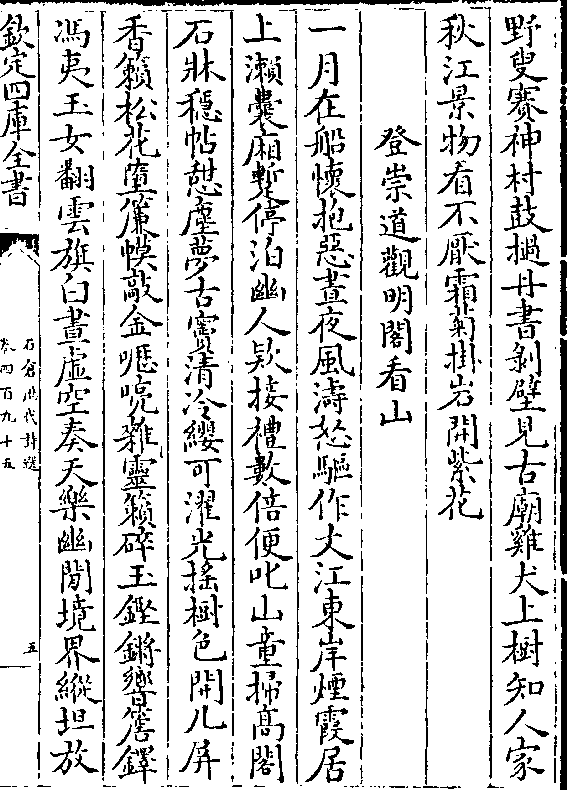 野叟賽神村鼓撾丹書剝壁見古廟雞犬上樹知人家
秋江景物看不厭霜菊掛岩開紫花
登崇道觀明閣看山
一月在船懷抱惡晝夜風濤怒驅作大江東岸煙霞居
上瀨囊廂暫停泊幽人欵接禮數倍便叱山童掃高閣
石牀穩帖憇塵夢古竇清冷纓可濯光搖樹色開几屏
香籟松花墮簾幙敲金嚦喨雜靈籟碎玉鏗鏘響簷鐸
馮夷玉女翻雲旗白晝虛空奏天樂幽閒境界縱坦放
欽定四庫全書
石倉歴代詩選
卷四百九十五
五